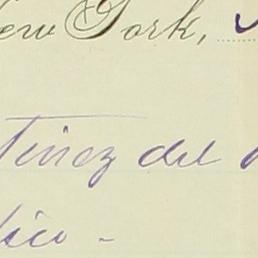 New York,
tinez del
xico -